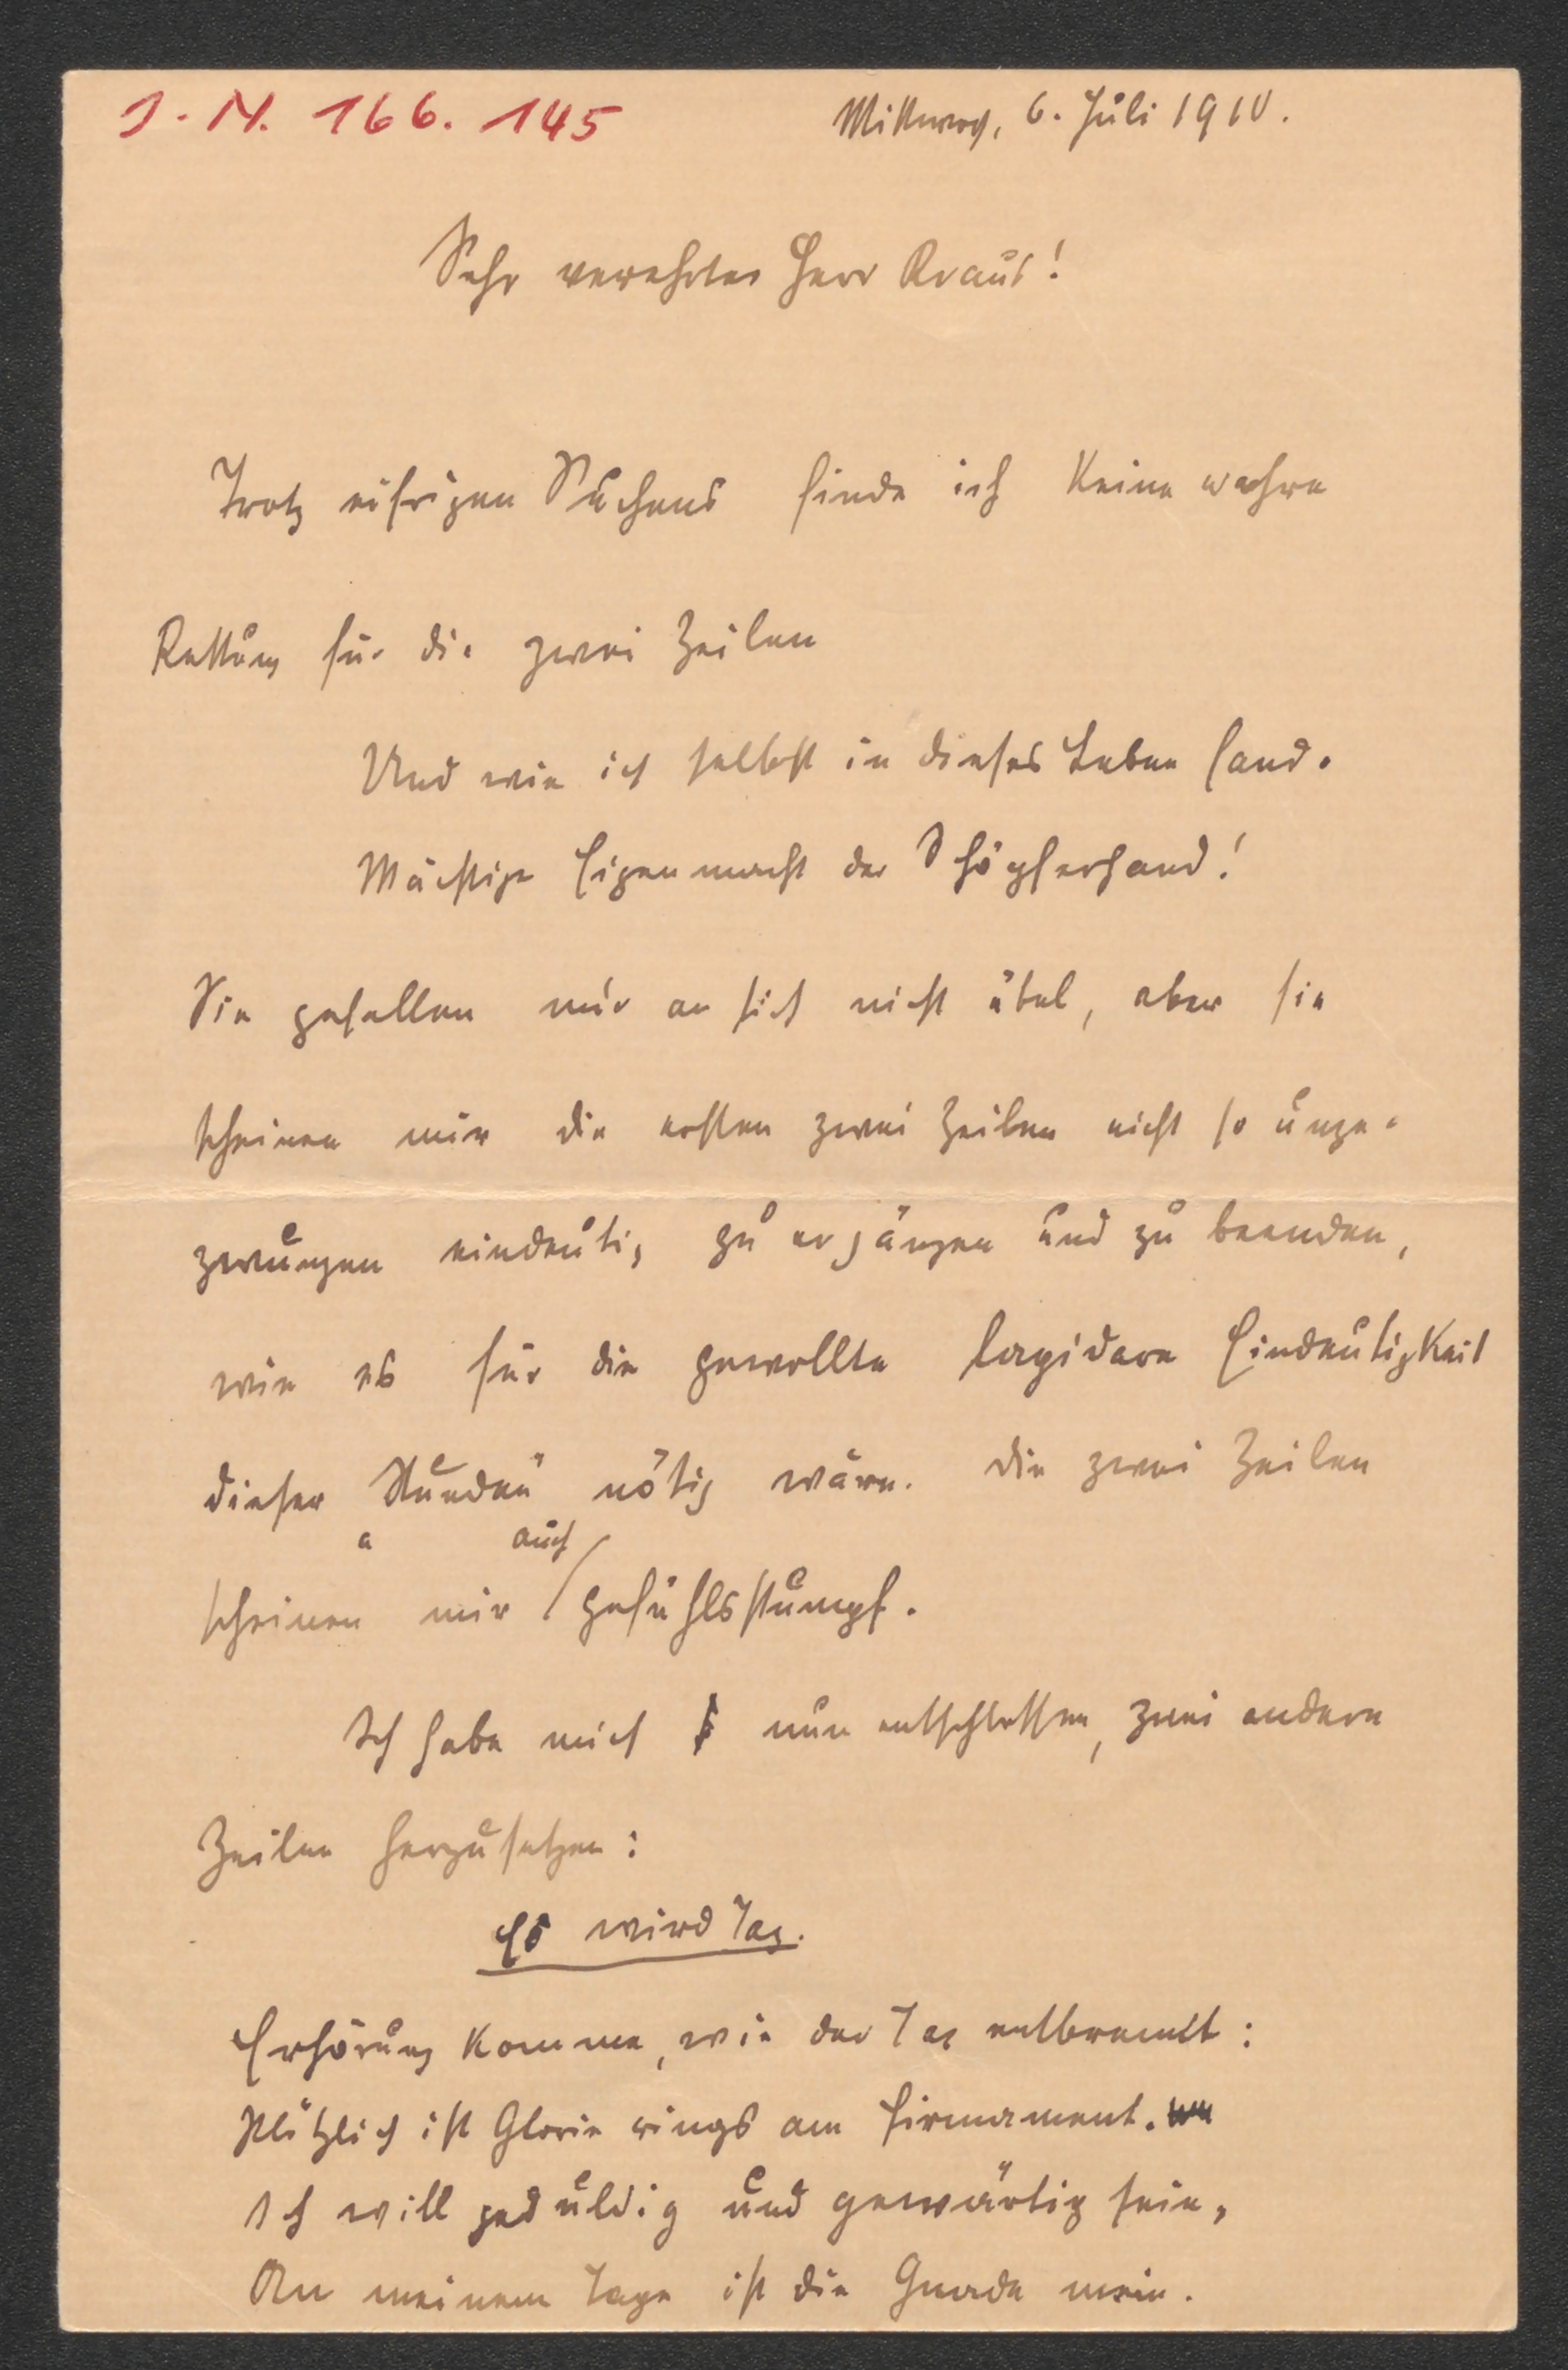 I. N. 166.145
Mittwoch, 6. Juli 1910.
Sehr verehrter Herr Kraus!
Trotz eifrigen Suchens finde ich keine wahre
Rettung für die zwei Zeilen
Und wie ich selbst in dieses Leben fand.
Mächtige Eigenmacht der Schöpferhand!
Sie gefallen mir an sich nicht übel, aber sie
scheinen mir die ersten zwei Zeilen nicht so unge-
zwungen eindeutig zu ergänzen und zu beenden,
wie es für die gewollte lapidare Eindeutigkeit
dieser „Stunden" nötig wäre. Die zwei Zeilen
auch
scheinen mir gefühlsstumpf.
Ich habe mich nun entschlossen, zwei andere
Zeilen herzusetzen:
Es wird Tag.
Erhörung komme, wie der Tag entbrennt:
Plötzlich ist Glorie rings am Firmament.
Ich will geduldig und gewärtig sein,
An meinem Tage ist die Gnade mein.